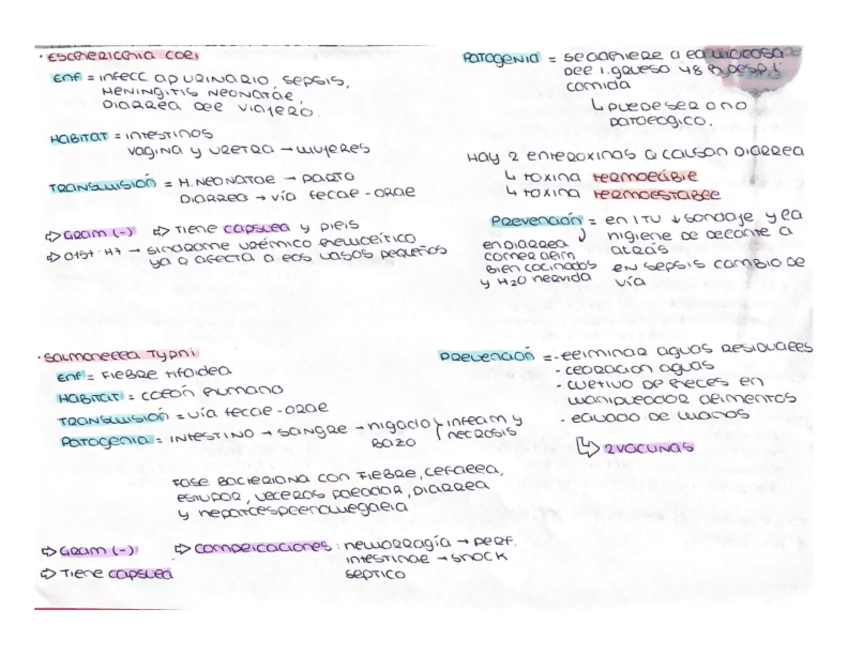 · Escherichia coli
Enf = infecc ap urinario, sepsis,
meningitis neonatal,
diarrea del viajero.
Habitat = intestinos
vagina y uretra → mujeres
Transmisión = M. neonatal → parto
Diarrea → vía fecal-oral
⇨ Gram (-) ⇨ Tiene capsula y pielis
⇨ O157:H7 → sindrome urémico hemolítico
ya q afecta a los vasos pequeños
Patogenia = se adhiere a la mucosa
del i. grueso 48 h desp.
comida
↳ puede ser o no
patológico.
Hay 2 enteroxinas q causan diarrea
↳ toxina termolábil
↳ toxina termoestable
Prevención = en ITU ↓ sondaje y la
higiene de delante a
atrás
en diarrea
comer alim
bien cocinados
y H2O hervida
en sepsis cambio de
vía
· Salmonella Typhi
Enf = Fiebre tifoidea
Habitat = colon humano
Transmisión = vía fecal-oral
Patogenia = intestino → sangre → higado
bazo
inflam y
necrosis
fase bacteriana con fiebre, cefalea,
estupor, ulceras paladar, diarrea
y hepatoesplenomegalia
⇨ Gram (-)
⇨ Tiene capsula
⇨ Complicaciones: hemorragía → perf.
intestinal → shock
septico
Prevención = - eliminar aguas residuales
- cloracion aguas
- cultivo de heces en
manipulador alimentos
- lavado de manos
↳ 2 vacunas